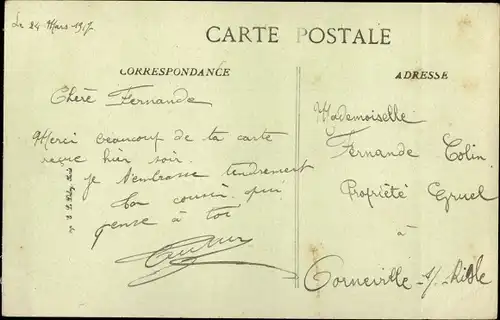 Le 24 Mars 1917
CARTE POSTALE
CORRESPONDANCE
ADRESSE
Chère Fernande
Merci beaucoup de ta carte
reçue hier soir.
je t'embrasse tendrement
Ton cousin qui
pense à toi
Mademoiselle
Fernande Colin
Propriété Gruel
à
Corneville-s/-Risle